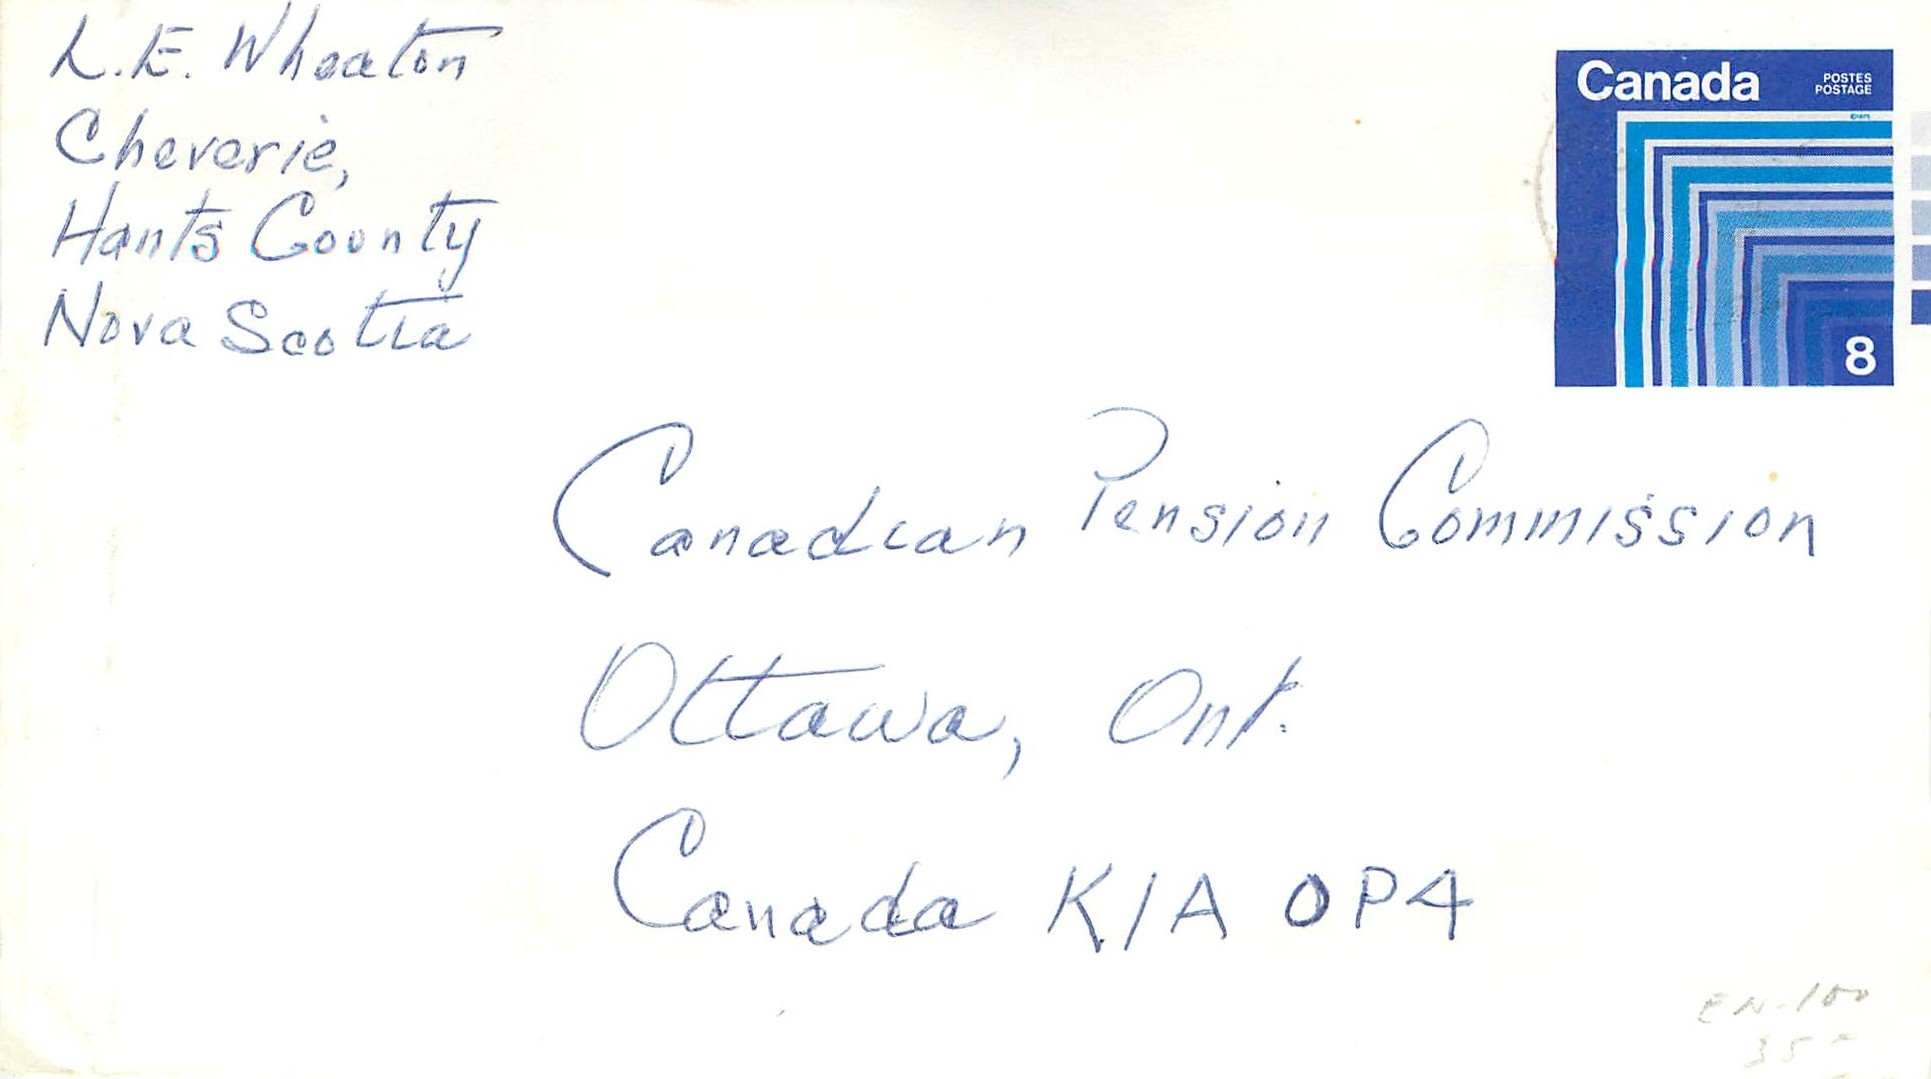 L.E. Wheaton
Cheverie,
Hants County
Nova Scotia
Canada
POSTES
POSTAGE
8
Canadian Pension Commission
Ottawa, Ont.
Canada K1A 0P4
EN-100